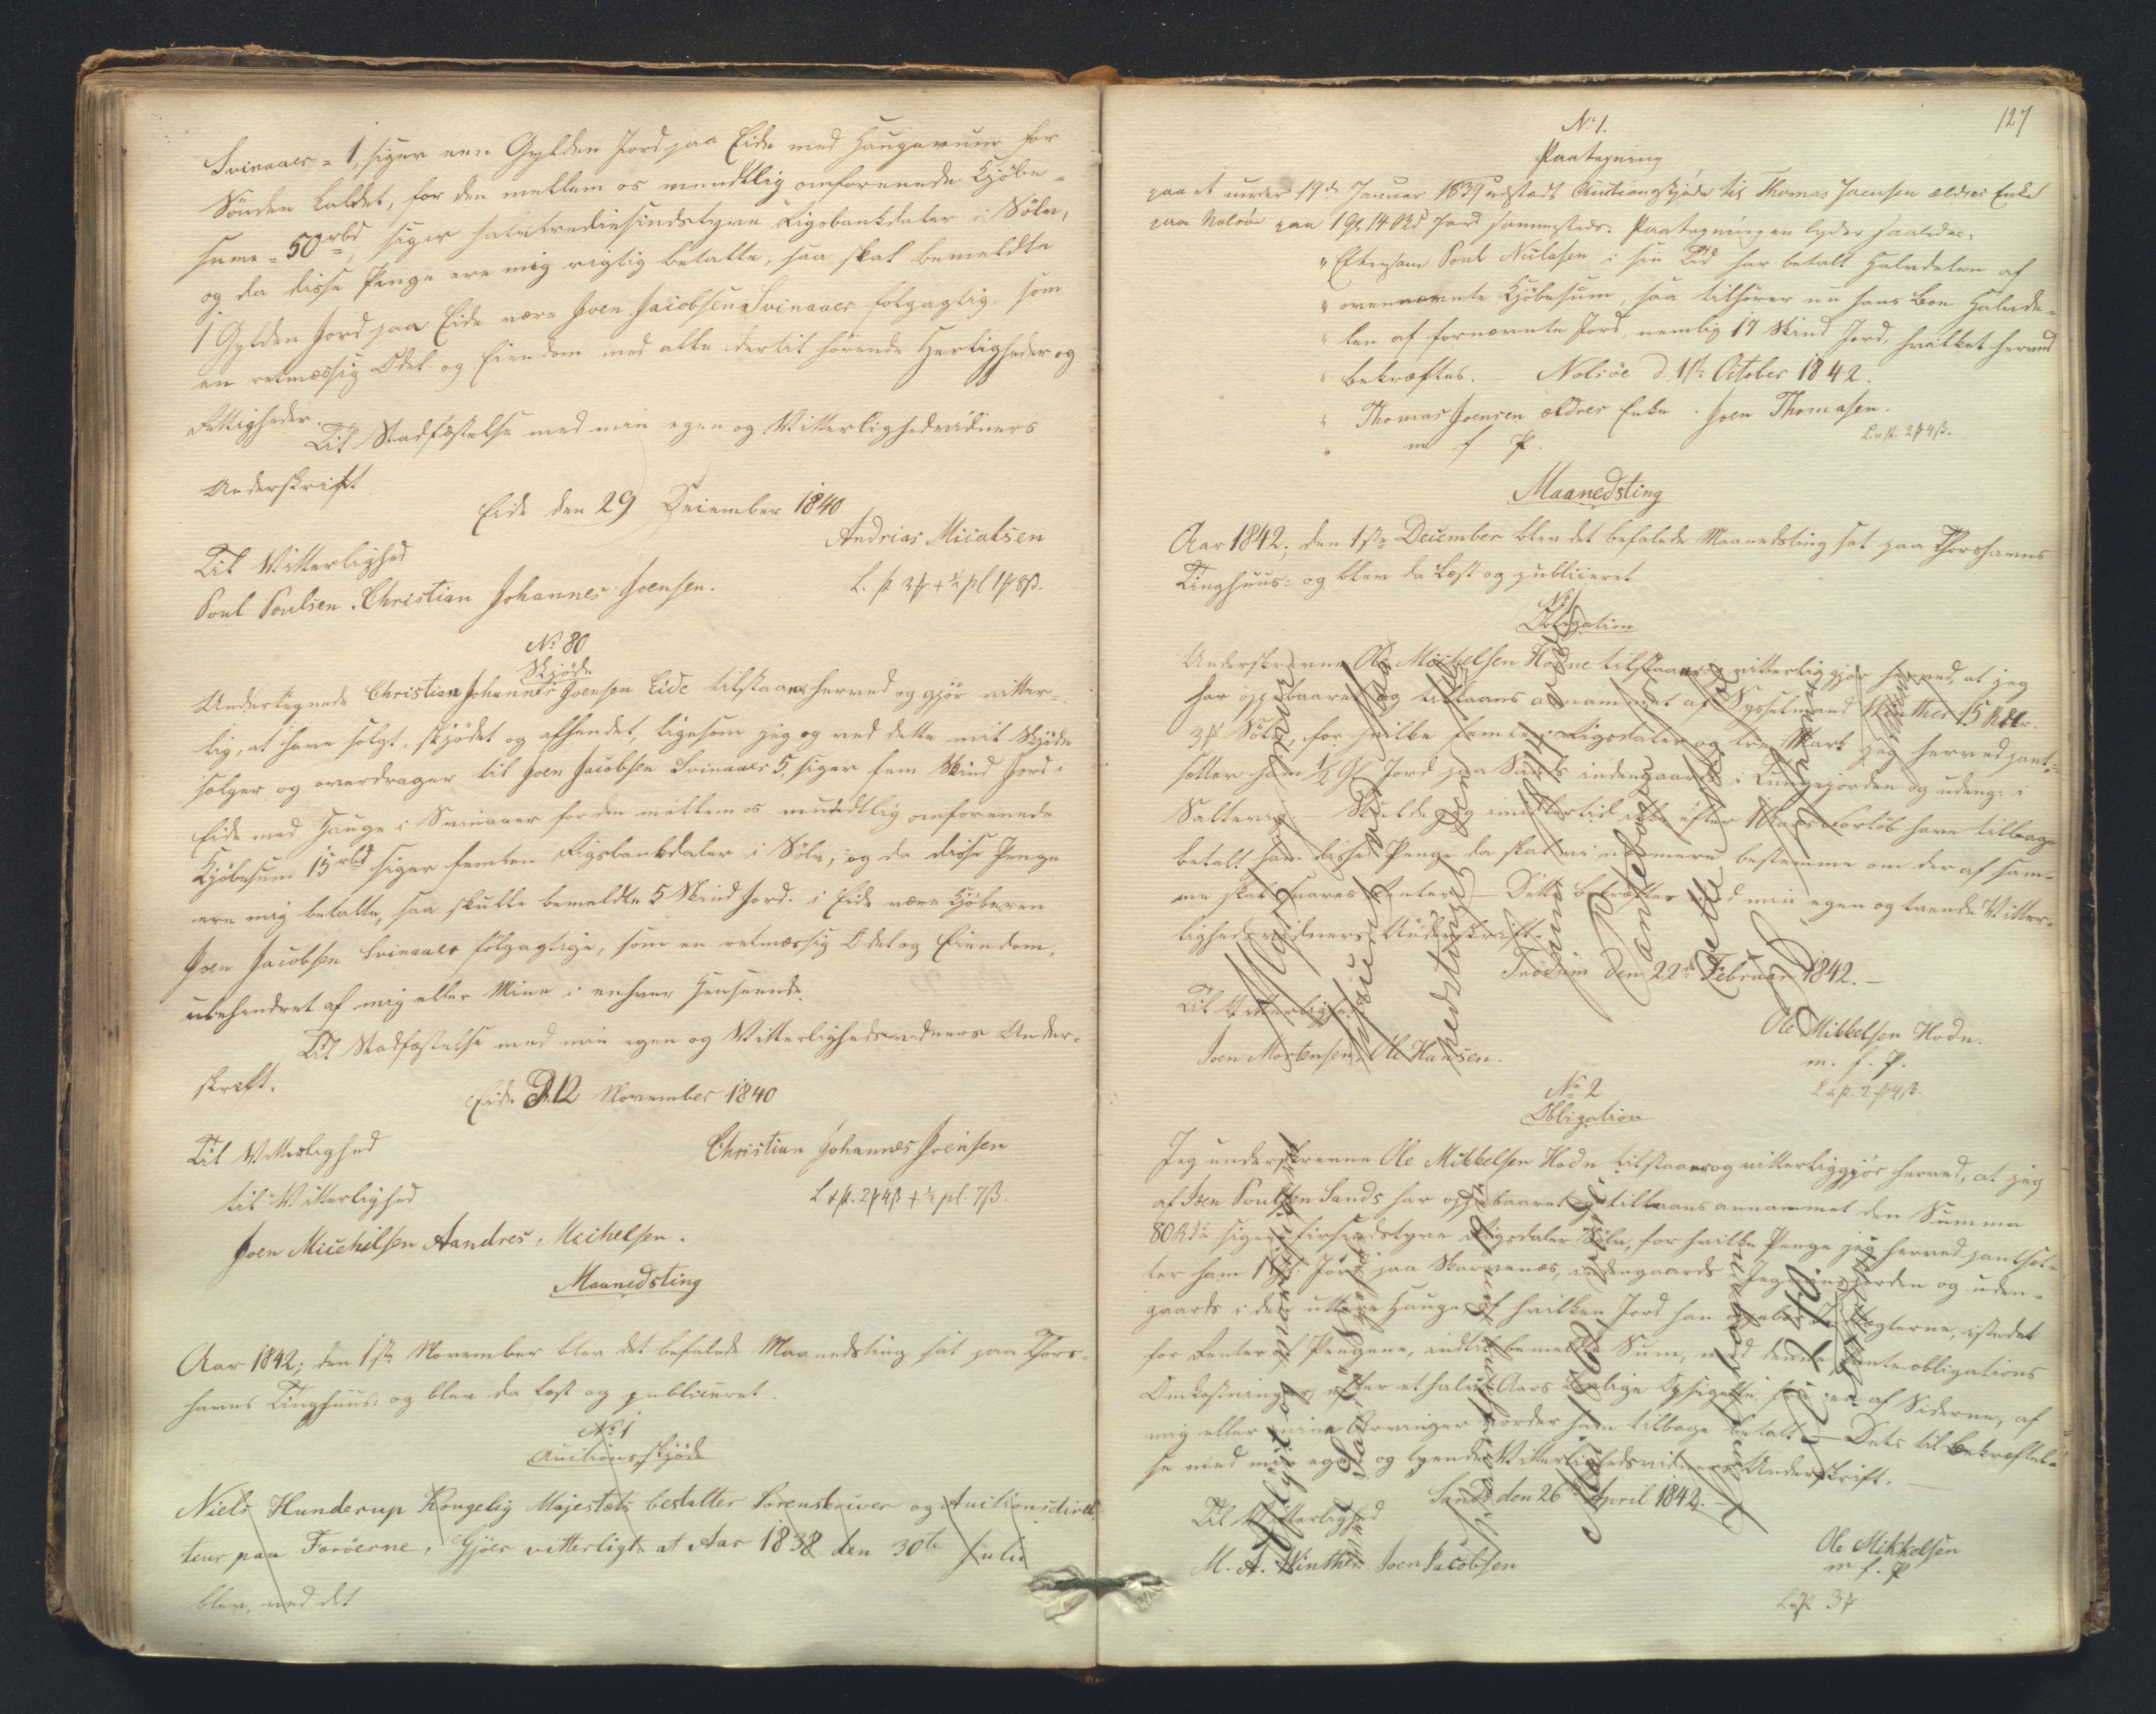 Svinaaer = 1, siger een Gylden Jord paa Eide med Haugarum for
Sönden Caldet, for den mellem os mundtlig omforenede Kjöbe-
sume = 50 rbd, siger halvtrediesindstyve Rigsbankdaler i Sölv,
og da disse Penge ere mig rigtig betalte, saa skal bemeldte
1 Gylden Jord paa Eide være Joen Jacobsen Svinaaer fölgagtig, som
en retmæssig Odel og Eiendom med alle dertil hörende Herligheder og
Rettigheder.
Til Stadfæstelse med min egen og Vitterlighedsvidners
Underskrift
Eide den 29 December 1840
Andrias Micalsen
Til Vitterlighed
Poul Poulsen. Christian Johannes Joensen.
No 80
Skjöde
Undertegnede Christian Johannes Joensen Eide tilstaaer herved og gjör vitter-
lig, at have solgt, skjödet og afhendet, ligesom jeg og ved dette mit Skjöde
sælger og overdrager til Joen Jacobsen Svinaaer 5, siger fem Skind Jord i
Eide med Hauge i Svinaaer for den mellem os mundtlig omforenede
Kjöbesum 15 rbd siger femten Rigsbankdaler i Sölv, og da disse Penge
ere mig betalte, saa skulle bemeldte 5 Skind Jord i Eide være Kjöberen
Joen Jacobsen Svinaaer fölgagtige, som en retmæssig Odel og Eiendom,
ubehindret af mig eller Mine i enhver Henseende.
Til Stadfæstelse med min egen og Vitterlighedsvidners Under-
skrift.
Eide D. 12 November 1840
Christian Johannes Joensen
Til Vitterlighed
til Vitterlighed
L & p. 2 4 ß + ½ pl. 7 ß.
Joen Micehilsen Aandres Michelsen.
Maanedsting
Aar 1842, den 1ste November blev det befalede Maanedsting sat paa Thors-
havns Tinghuus: og blev da læst og publiceret.
No 1
Auctionsskjöde
Niels Hunderup Kongelig Majestæts bestalter Sorenskriver og Auctionsdirek
teur paa Færöerne, Gjör vitterligt at Aar 1838 den 30te Julii
blev, ved det
127
No 1.
Paategning
paa et under 19de Januar 1839 udstædt Auctionsskjöde til Thomas Joensen ældres Enke
paa Nolsöe paa 1 Gl. 14 Skd Jord sammesteds. Paategningen lyder saaledes:
" Eftersom Poul Nielsen i sin Tid har betalt Halvdelen af
" ovennævnte Kjöbesum, saa tilhörer nu hans Boe Halvde-
" len af fornævnte Jord, nemlig 17 Skind Jord, hvilket herved
" bekræftes. – Nolsöe d. 1ste October 1842.
" Thomas Joensen ældres Enke. Joen Thomasen.
" m f P.
L. & p. 2 4 ß.
Maanedsting
Aar 1842, den 1ste December blev det befalede Maanedsting sat paa Thorshavns
Tinghuus: og blev da læst og publiceret
No 1
Obligation
Underskrevne Ole Mickelsen Hodne tilstaaer og vitterliggjör herved, at jeg
har oppebaaret og tillaans annammet af Sysselmand Winther 15 Rdlr
3 Sölv, for hvilke femten Rigsdaler og tre Mark jeg herved pant-
sætter ham ½ Gl. Jord paa Sands indengaards i Tungejorden og udeng: i
Saltevig. Skulde jeg imidlertid ikke efter 1 Aars Forlöb have tilbage
betalt ham disse Penge da skal vi nærmere bestemme om der af sam-
me skal svares Renter. – Dette bekræftes med min egen og tvende Vitter-
lighedsvidners Underskrift.
Tröðum den 22de Februar 1842. –
Til Vitterlighed
Ole Mikkelsen Hodn.
Joen Mortensen. Ole Hansen.
m. f. P.
L & p. 2 4 ß.
No 2
Obligation
Jeg underskrevne Ole Mikkelsen Hodn tilstaaer og vitterliggjör herved, at jeg
af Joen Poulsen Sands har oppebaaret og tillaans annammet den Summa
80 Rdr siger firsindstyve Rigsdaler Sölv, for hvilke Penge jeg herved pantsæt-
ter ham 1 Gl. Jord paa Skarvenæs, indengaards i og uden-
gaards i den uttere Hauge, af hvilken Jord han oppebær Indtægterne, istedet
for Renter af Pengene, indtil bemeldte Sum, med denne Panteobligations
Omkostninger, efter et halvt Aars lovlige Opsigelse fra een af Siderne, af
mig eller mine Arvinger vorder ham tilbage betalt – Dets til Bekræftel-
se med min egen og tvende Vitterlighedsvidners Underskrift.
Sands den 26de April 1842. –
Til Vitterlighed
Ole Mikkelsen
M. A. Winther Joen Jacobsen
m f. P
L & p 3